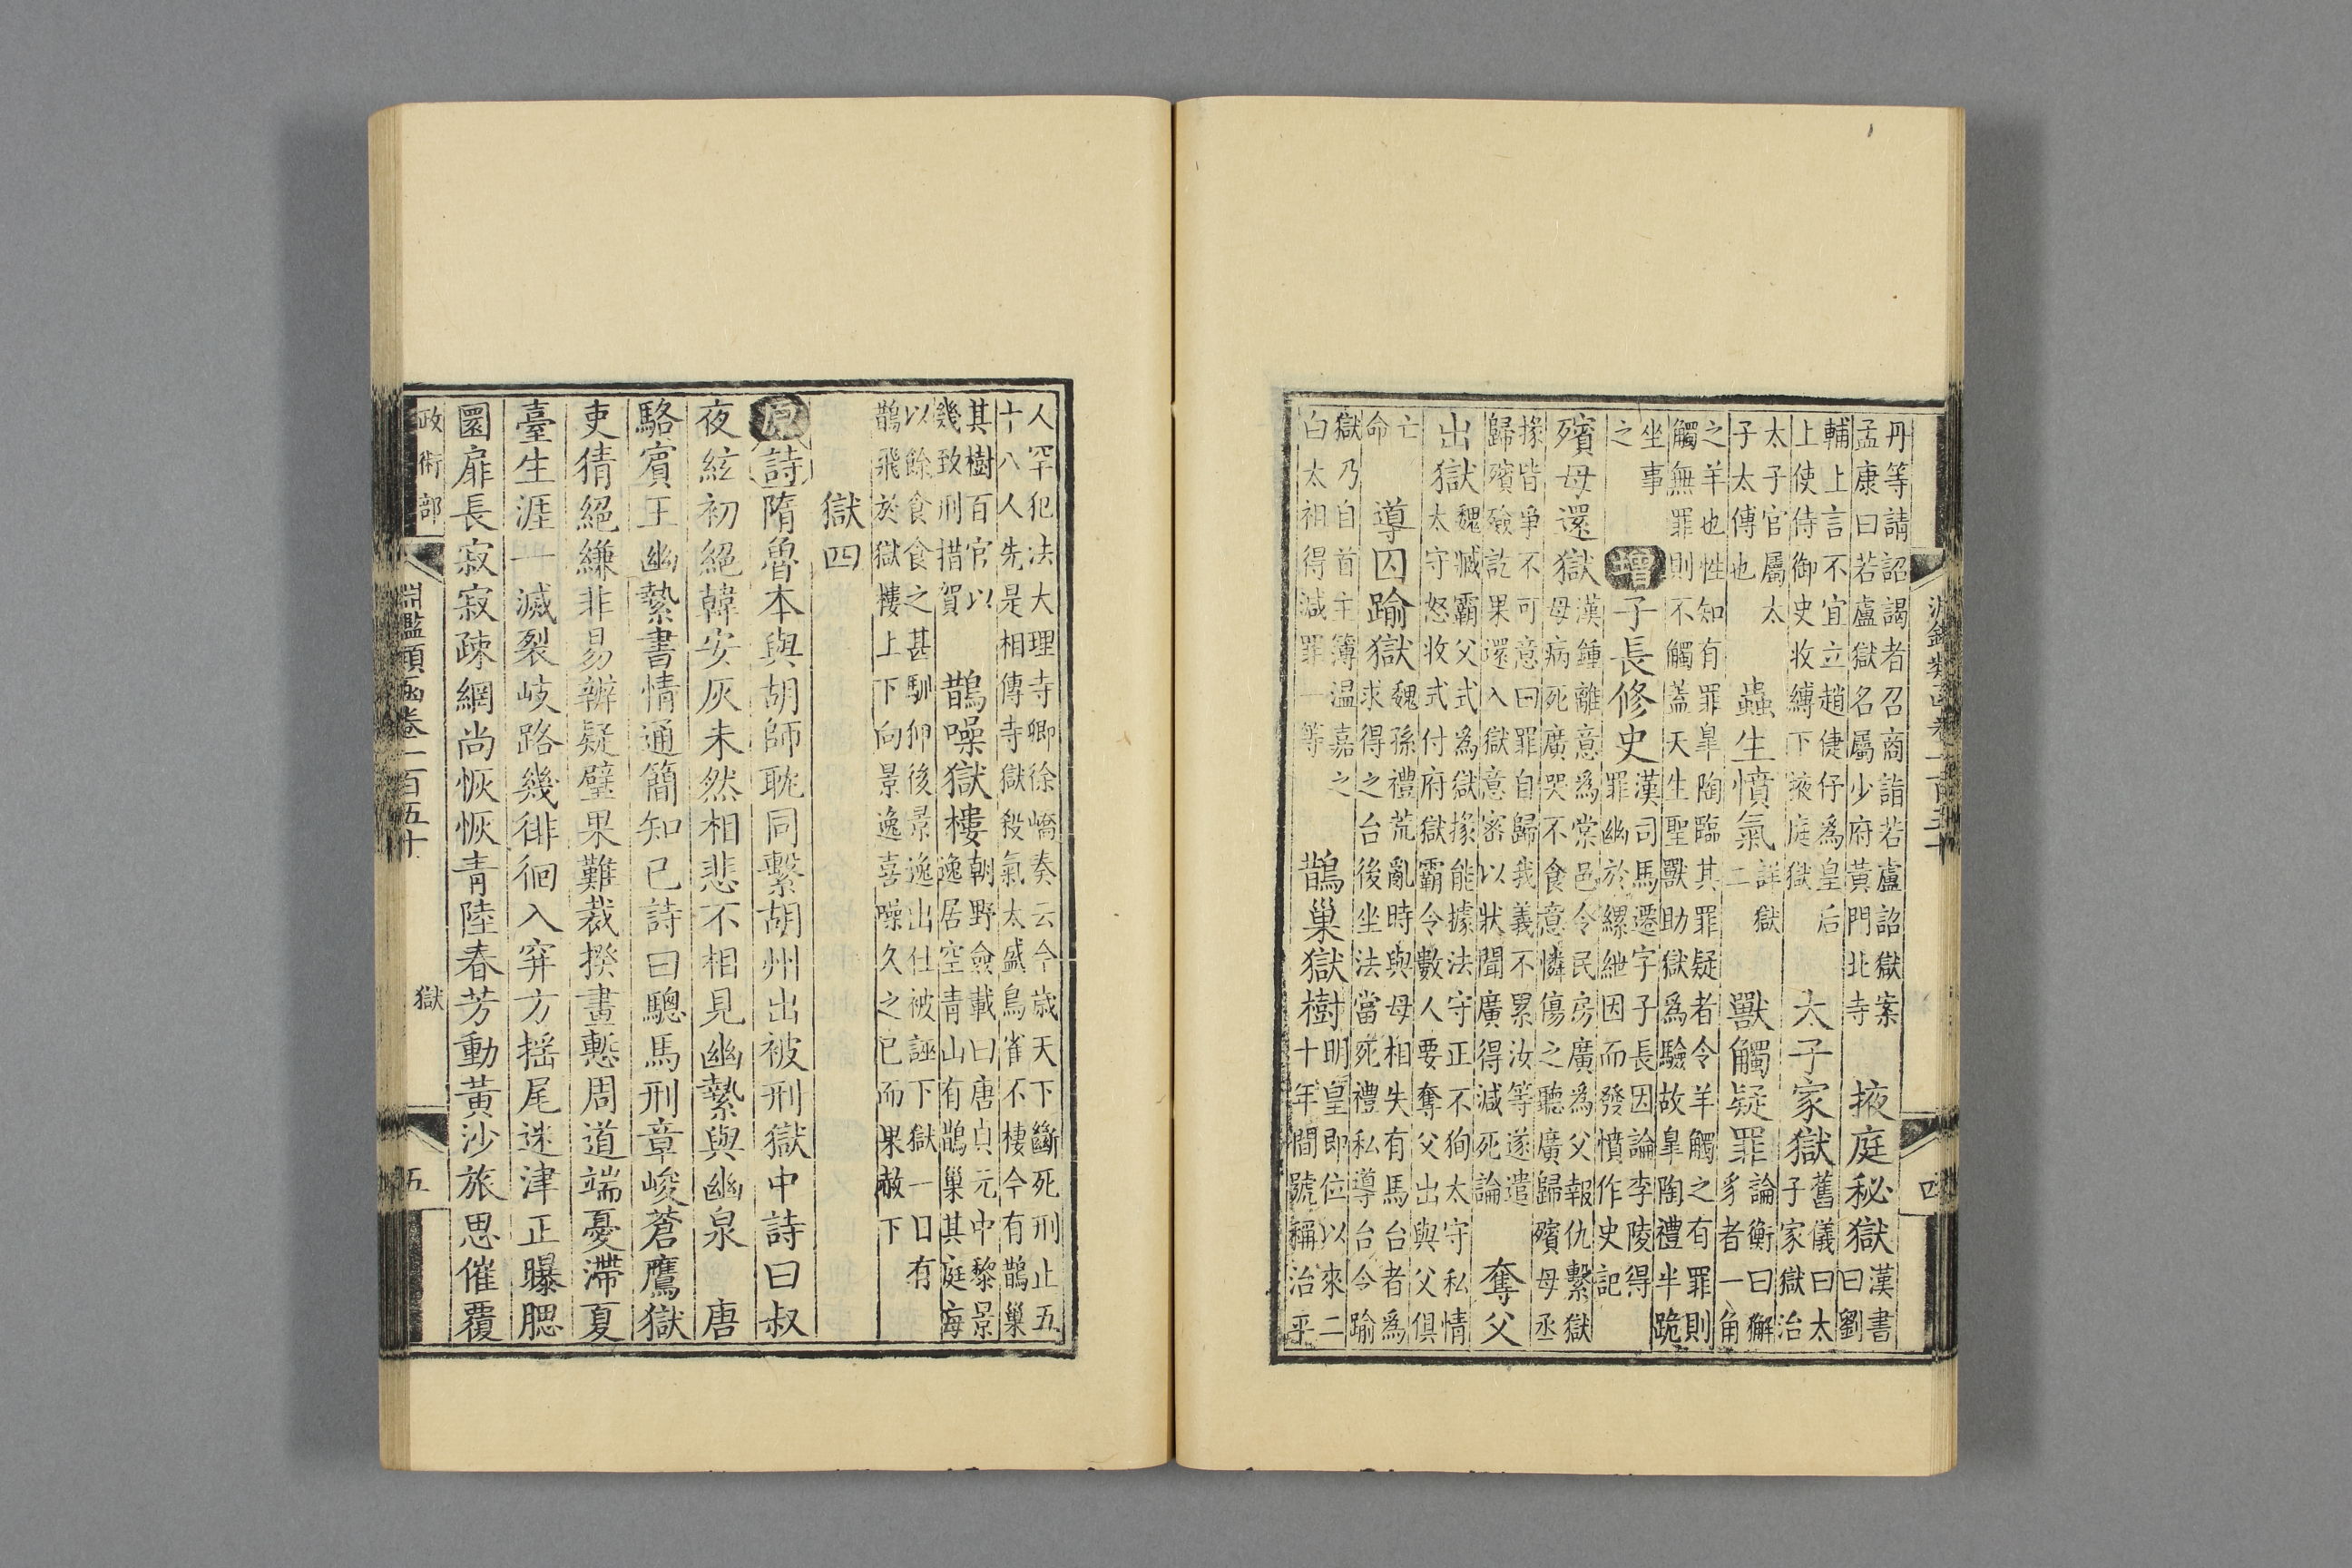 淵鑑類函卷一百五十 四
丹等請詔謁者召商詣若盧詔獄案
孟康曰若盧獄名屬少府黃門北寺
掖庭秘獄
漢書
曰劉
輔上言不宜立趙倢伃爲皇后
上使侍御史收縛下掖庭獄
太子家獄
舊儀曰太
子家獄治
太子官屬太
子太傅也
蟲生憤氣
詳獄
二
獸觸疑罪
論衡曰獬
豸者一角
之羊也性知有罪皐陶臨其罪疑者令羊觸之有罪則
觸無罪則不觸蓋天生聖獸助獄爲驗故皐陶禮半跪
坐事
之
增 子長修史
漢司馬遷字子長因論李陵得
罪幽於縲紲因而發憤作史記
殯母還獄
漢鍾離意爲棠邑令民房廣爲父報仇繫獄
母病死廣哭不食意憐傷之聽廣歸殯母丞
掾皆爭不可意曰罪自歸我義不累汝等遂遣
歸殯殮訖果還入獄意密以狀聞廣得減死論
奪父
出獄
魏臧霸父式爲獄掾能據法守正不狥太守私情
太守怒收式付府獄霸令數人要奪父出與父俱
亡
命
導囚踰獄
魏孫禮荒亂時與母相失有馬台者爲
求得之台後坐法當死禮私導台令踰
獄乃自首主簿温嘉之
白太祖得減罪一等
鵲巢獄樹
明皇即位以來二
十年間號稱治平
人罕犯法大理寺卿徐嶠奏云今歲天下斷死刑止五
十八人先是相傳寺獄殺氣太盛鳥雀不棲今有鵲巢
其樹百官以
幾致刑措賀
鵲噪獄樓
朝野僉載曰唐貞元中黎景
逸居空青山有鵲巢其庭每
以餘食食之甚馴仰後景逸出仕被誣下獄一日有
鵲飛於獄樓上下向景逸喜噪久之已而果赦下
獄四
原 詩隋魯本與胡師耽同繫胡州出被刑獄中詩曰叔
夜絃初絕韓安灰未然相悲不相見幽縶與幽泉 唐
駱賓王幽縶書情通簡知已詩曰驄馬刑章峻蒼鷹獄
吏猜絕縑非易辨疑璧果難裁揆畫慙周道端憂滯夏
臺生涯一滅裂岐路幾徘徊入穽方搖尾迷津正曝腮
圜扉長寂寂疎網尚恢恢青陸春芳動黃沙旅思催覆
政術部 淵鑑類函卷一百五十 獄 五